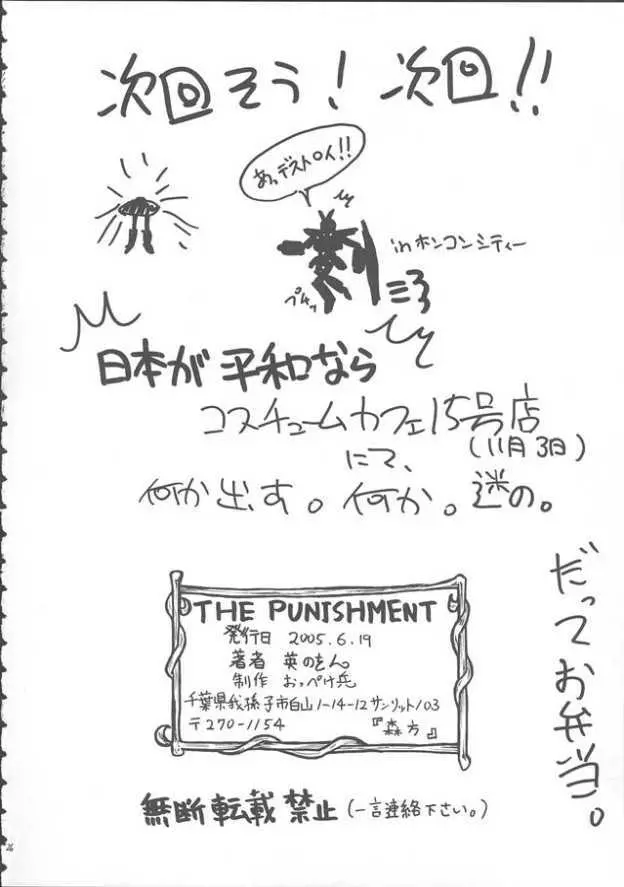 次回そう! 次回!!
あっデストロイ!!
inホンコンシティー
プチッ
日本が平和なら
コスチュームカフェ15号店
(11月3日)
にて、
何か出す。何か。謎の。
だってお弁当。
THE PUNISHMENT
発行日 2005.6.19
著者 英のもん。
制作 おっぺけ兵
千葉県我孫子市白山1-14-12サンリット103
〒270-1154 『森方』
無断転載禁止(一言連絡下さい。)